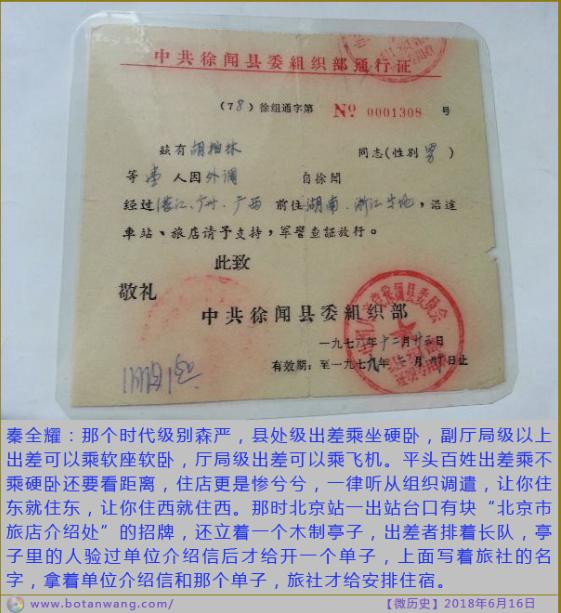 中共徐闻县委組织部通行证
（78）徐组通字第 Nº 0001308 号
兹有胡柏林 同志(性别男)
等壹人因外调 自徐闻
经过湛江、广州、广西 前往湖南、浙江等地，沿途
車站、旅店请予支持，军警查証放行。
此致
敬礼
中共徐闻县委組织部
一九七八年十二月廿二日
有效期：至一九七九年 月 日止
秦全耀：那个时代级别森严，县处级出差乘坐硬卧，副厅局级以上
出差可以乘软座软卧，厅局级出差可以乘飞机。平头百姓出差乘不
乘硬卧还要看距离，住店更是惨兮兮，一律听从组织调遣，让你住
东就住东，让你住西就住西。那时北京站一出站台口有块“北京市
旅店介绍处”的招牌，还立着一个木制亭子，出差者排着长队，亭
子里的人验过单位介绍信后才给开一个单子，上面写着旅社的名
字，拿着单位介绍信和那个单子，旅社才给安排住宿。
@www.botanwang.com/ 【微历史】2018年6月16日